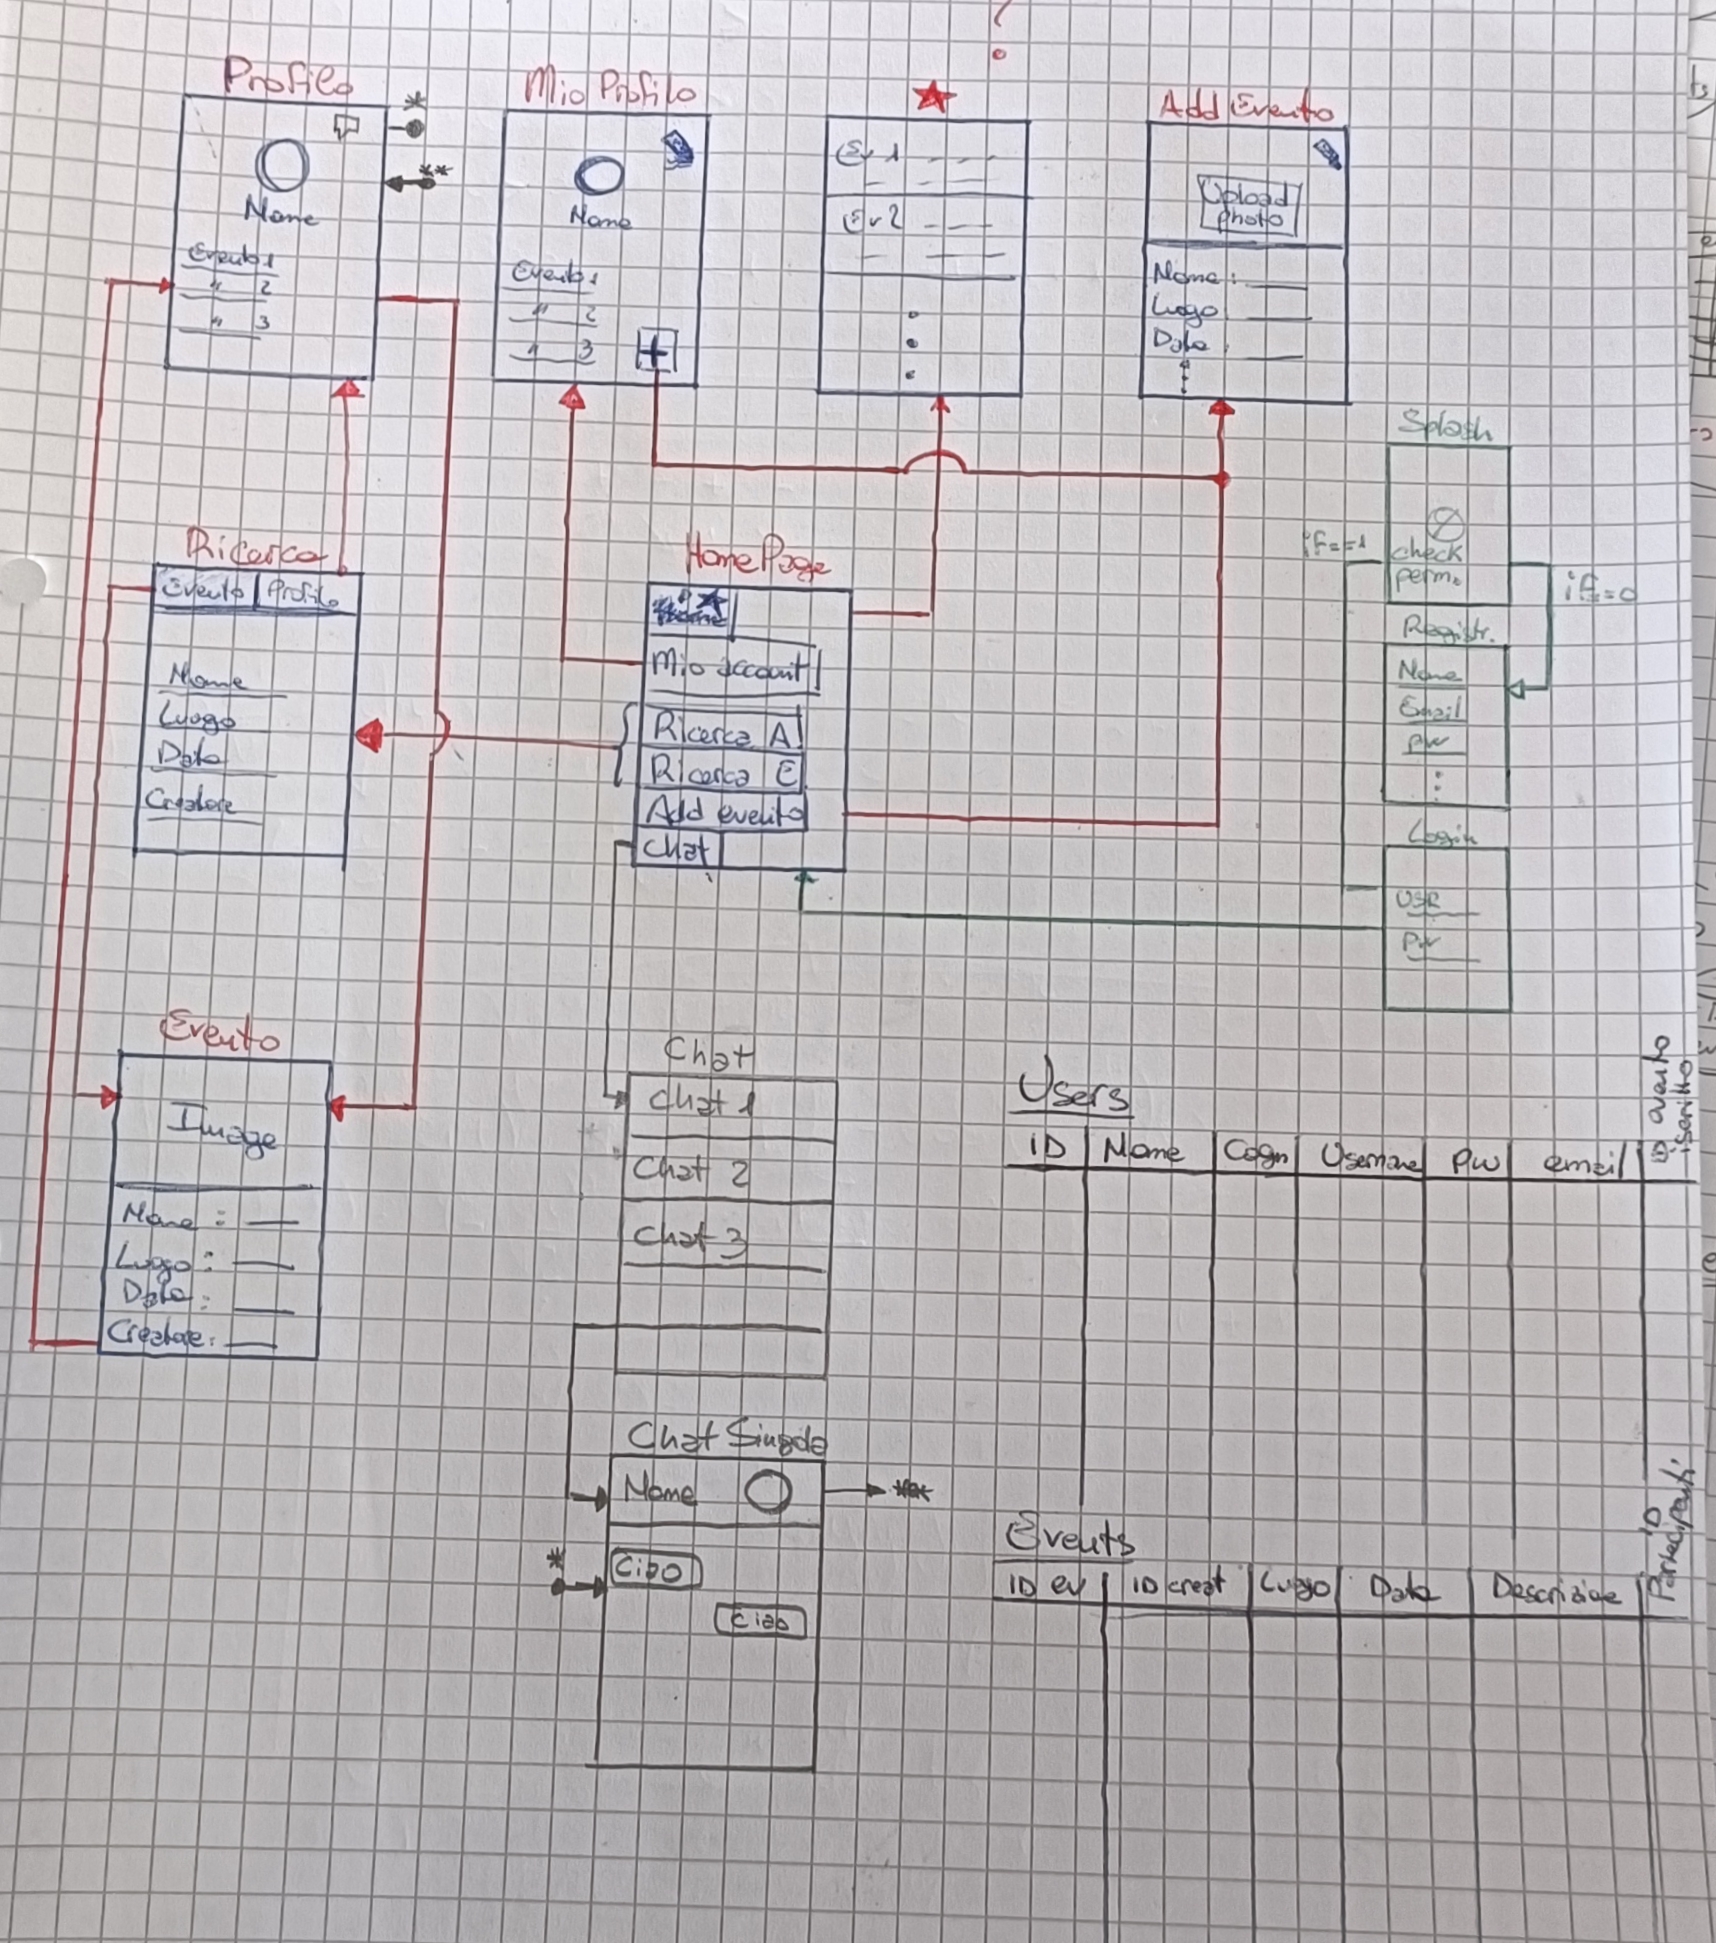 ?
Profilo
*
**
Name
Evento 1
" 2
" 3
Mio Profilo
Name
Evento 1
" 2
" 3
+
Ev 1
Ev 2
Add Evento
Upload
photo
Nome:
Luogo
Data:
Splash
check
perm.
if==1
if=0
Registr.
Name
Email
PW
Login
USR
PW
Ricerca
Evento Profilo
Nome
Luogo
Data
Creatore
HomePage
Mio account
Ricerca A
Ricerca E
Add evento
Chat
Evento
Image
Nome:
Luogo:
Data:
Creatore:
Chat
Chat 1
Chat 2
Chat 3
Chat Singola
Nome
**
*
Ciao
Ciao
Users
ID Nome Cogn Username PW email ID evento iscritto
Events
ID ev ID creat Luogo Data Descrizione ID Partecipanti